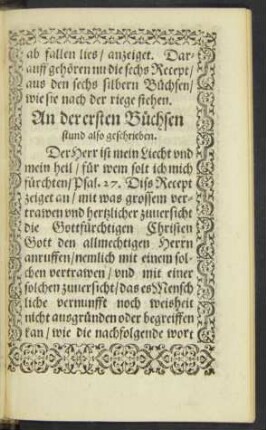 ab fallen lies/ anzeiget. Dar-
auff gehören nu die sechs Recept/
aus den sechs silbern Büchsen/
wie sie nach der riege stehen.
An der ersten Büchsen
stund also geschrieben.
Der Herr ist mein Liecht vnd
mein heil/ für wem solt ich mich
fürchten/ Psal. 27. Diss Recept
zeiget an/ mit was grossem ver-
trawen vnd hertzlicher zuuersicht
die Gottfürchtigen Christen
Gott den allmechtigen Herrn
anruffen/ nemlich mit einem sol-
chen vertrawen/ vnd mit einer
solchen zuuersicht/ das es Mensch
liche vernunfft noch weisheit
nicht ausgründen oder begreiffen
kan/ wie die nachfolgende wort